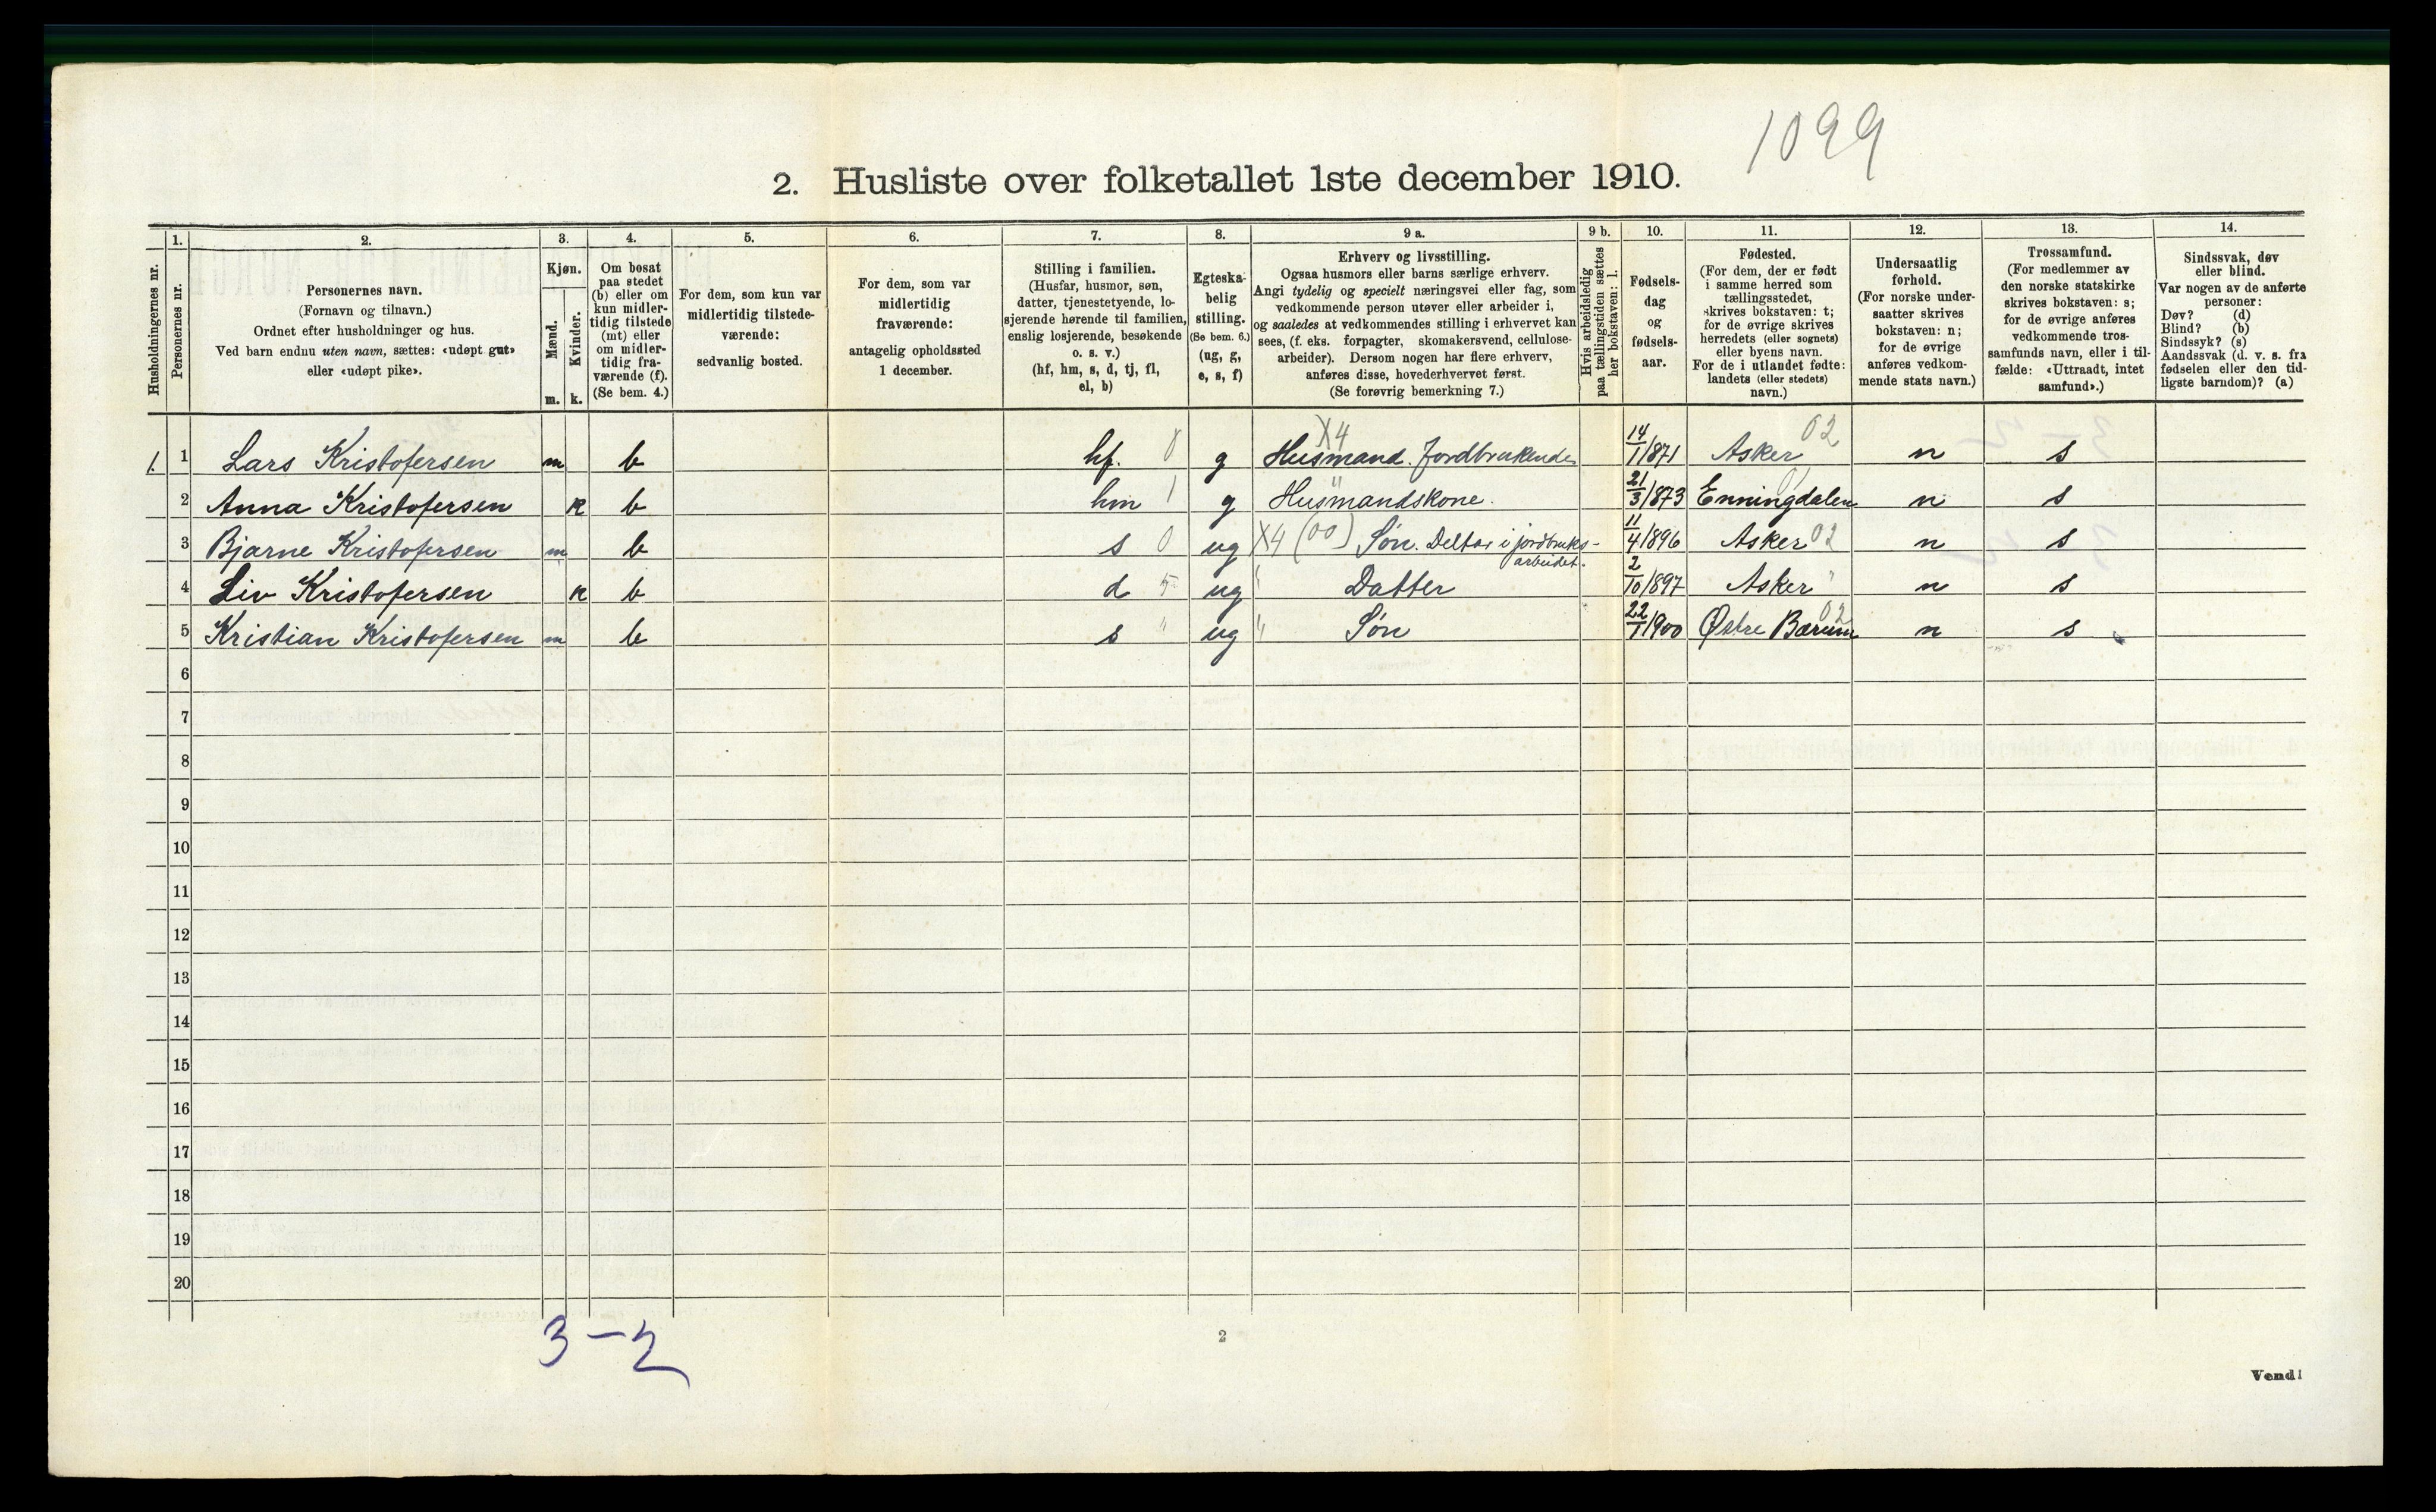 1099
2. Husliste over folketallet 1ste december 1910.
Husholdningernes nr.
1.
Personernes nr.
2.
Personernes navn.
(Fornavn og tilnavn.)
Ordnet efter husholdninger og hus.
Ved barn endnu uten navn, sættes: «udøpt gut»
eller «udøpt pike».
3.
Kjøn.
Mænd.
Kvinder.
m. k.
4.
Om bosat
paa stedet
(b) eller om
kun midler-
tidig tilstede
(mt) eller
om midler-
tidig fra-
værende (f).
(Se bem. 4.)
5.
For dem, som kun var
midlertidig tilstede-
værende:
sedvanlig bosted.
6.
For dem, som var
midlertidig
fraværende:
antagelig opholdssted
1 december.
7.
Stilling i familien.
(Husfar, husmor, søn,
datter, tjenestetyende, lo-
sjerende hørende til familien,
enslig losjerende, besøkende
o. s. v.)
(hf, hm, s, d, tj, fl,
el, b)
8.
Egteska-
belig
stilling.
(Se bem. 6.)
(ug, g,
e, s, f)
9 a.
Erhverv og livsstilling.
Ogsaa husmors eller barns særlige erhverv.
Angi tydelig og specielt næringsvei eller fag, som
vedkommende person utøver eller arbeider i,
og saaledes at vedkommendes stilling i erhvervet kan
sees, (f. eks. forpagter, skomakersvend, cellulose-
arbeider). Dersom nogen har flere erhverv,
anføres disse, hovederhvervet først.
(Se forøvrig bemerkning 7.)
9 b.
Hvis arbeidsledig
paa tællingstiden sættes
her bokstaven: l.
10.
Fødsels-
dag
og
fødsels-
aar.
11.
Fødested.
(For dem, der er født
i samme herred som
tællingsstedet,
skrives bokstaven: t;
for de øvrige skrives
herredets (eller sognets)
eller byens navn.
For de i utlandet fødte:
landets (eller stedets)
navn.)
12.
Undersaatlig
forhold.
(For norske under-
saatter skrives
bokstaven: n;
for de øvrige
anføres vedkom-
mende stats navn.)
13.
Trossamfund.
(For medlemmer av
den norske statskirke
skrives bokstaven: s;
for de øvrige anføres
vedkommende tros-
samfunds navn, eller i til-
fælde: «Uttraadt, intet
samfund».)
14.
Sindssvak, døv
eller blind.
Var nogen av de anførte
personer:
Døv? (d)
Blind? (b)
Sindssyk? (s)
Aandssvak (d. v. s. fra
fødselen eller den tid-
ligste barndom)? (a)
1. 1 Lars Kristofersen m b hf. 0 g X4 Husmand. Jordbrukende 14/1/871 Asker 02 n s
2 Anna Kristofersen k b hm 1 g " Husmandskone. 21/3/873 Enningdalen 01 n s
3 Bjarne Kristofersen m b s 0 ug X4 (00) Søn. Deltar i jordbruks-
arbeidet. 11/4/1896 Asker 02 n s
4 Liv Kristofersen k b d 5 ug " Datter 2/10/1897 Asker " n s
5 Kristian Kristofersen m b s " ug " Søn 22/1/1900 Østre Bærum 02 n s
6
7
8
9
10
11
12
13
14
15
16
17
18
19
20
3-2
2
Vend!